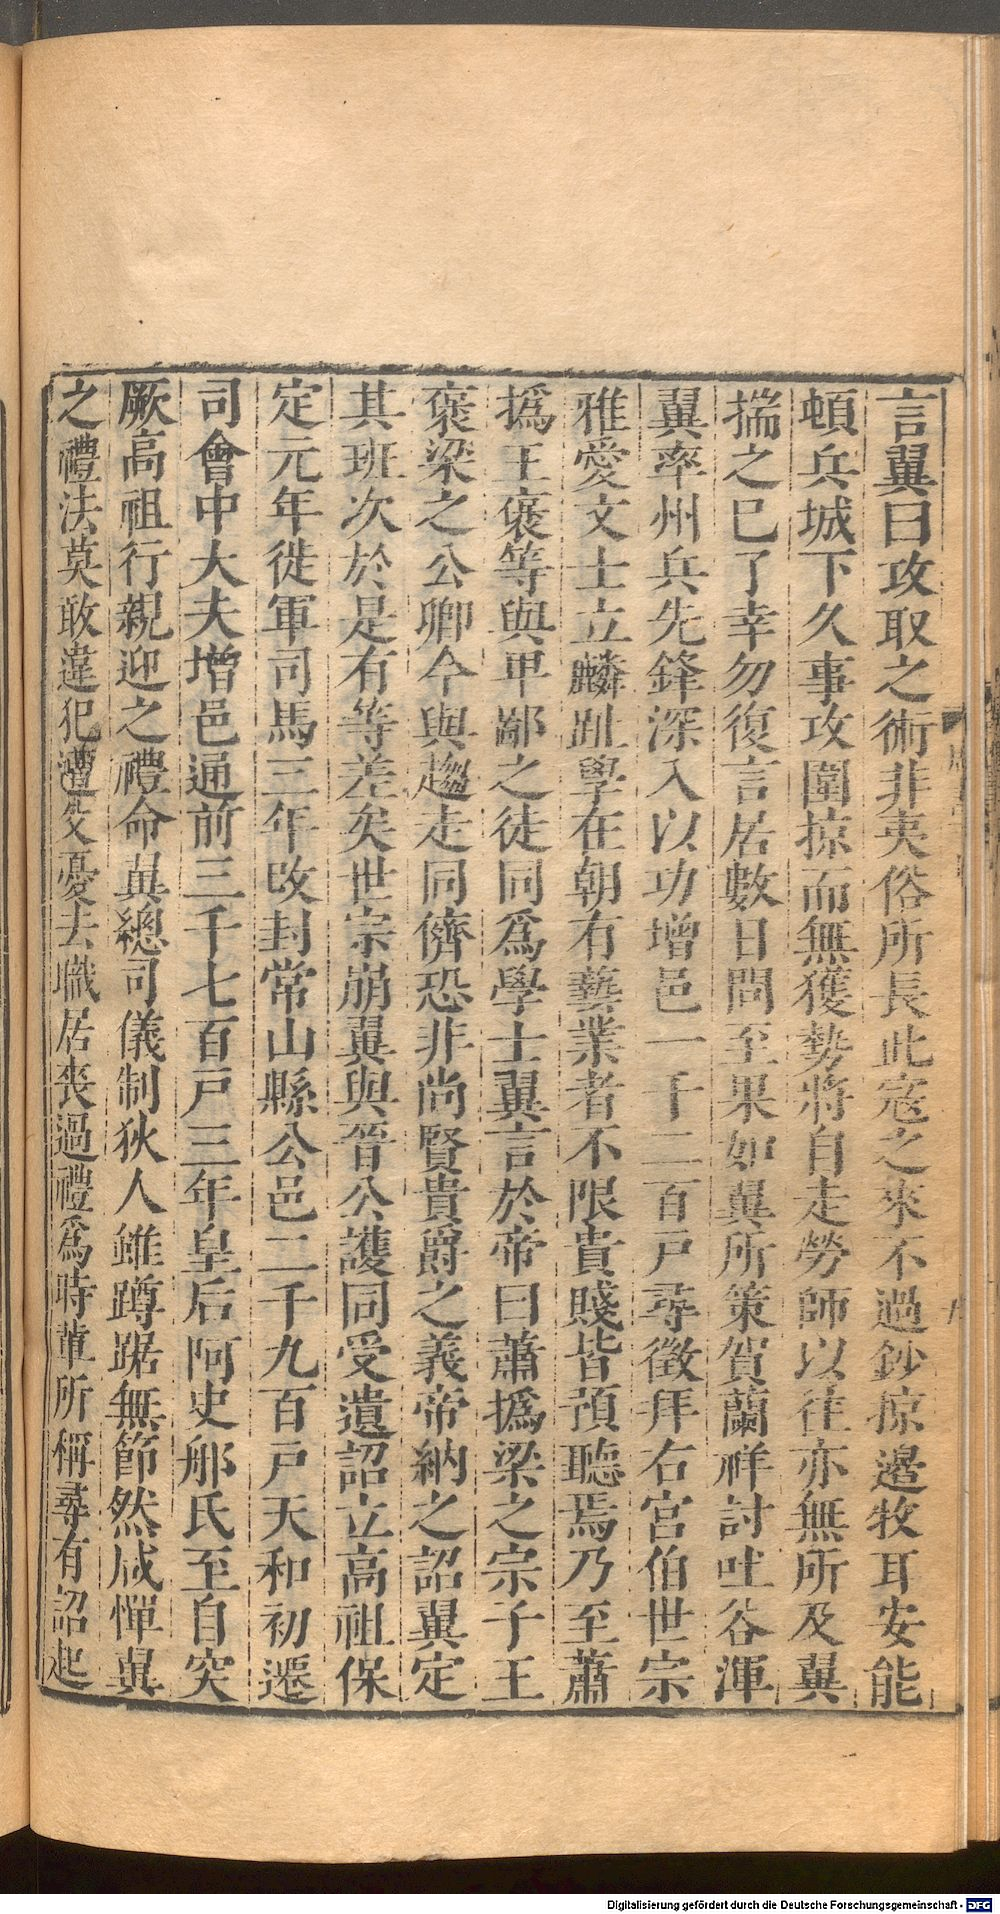 言翼曰攻取之術非夷俗所長此寇之來不過鈔掠邊牧耳安能
頓兵城下久事攻圍掠而無獲勢將自走勞師以往亦無所及翼
揣之已了幸勿復言居數日問至果如翼所策賀蘭祥討吐谷渾
翼率州兵先鋒深入以功增邑一千二百戸尋徵拜右宮伯世宗
雅愛文士立麟趾學在朝有藝業者不限貴賤皆預聽焉乃至蕭
撝王褒等與卑鄙之徒同爲學士翼言於帝曰蕭撝梁之宗子王
褒梁之公卿今與趨走同儕恐非尚賢貴爵之義帝納之詔翼定
其班次於是有等差矣世宗崩翼與晉公護同受遺詔立高祖保
定元年徙軍司馬三年改封常山縣公邑二千九百戸天和初遷
司會中大夫增邑通前三千七百戸三年皇后阿史那氏至自突
厥高祖行親迎之禮命翼總司儀制狄人雖蹲踞無節然咸憚翼
之禮法莫敢違犯遭父憂去職居喪過禮爲時輩所稱尋有詔起
Digitalisierung gefördert durch die Deutsche Forschungsgemeinschaft - DFG